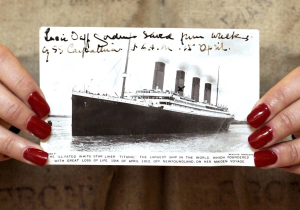 Duff Gordon Saved from
SS Carpathia A.M. 15 April.
ILLFATED WHITE STAR LINER TITANIC, THE LARGEST SHIP IN THE WORLD, WHICH FOUNDERED
WITH GREAT LOSS OF LIFE OF APRIL 1912 OFF NEWFOUNDLAND, ON HER MAIDEN VOYAGE.